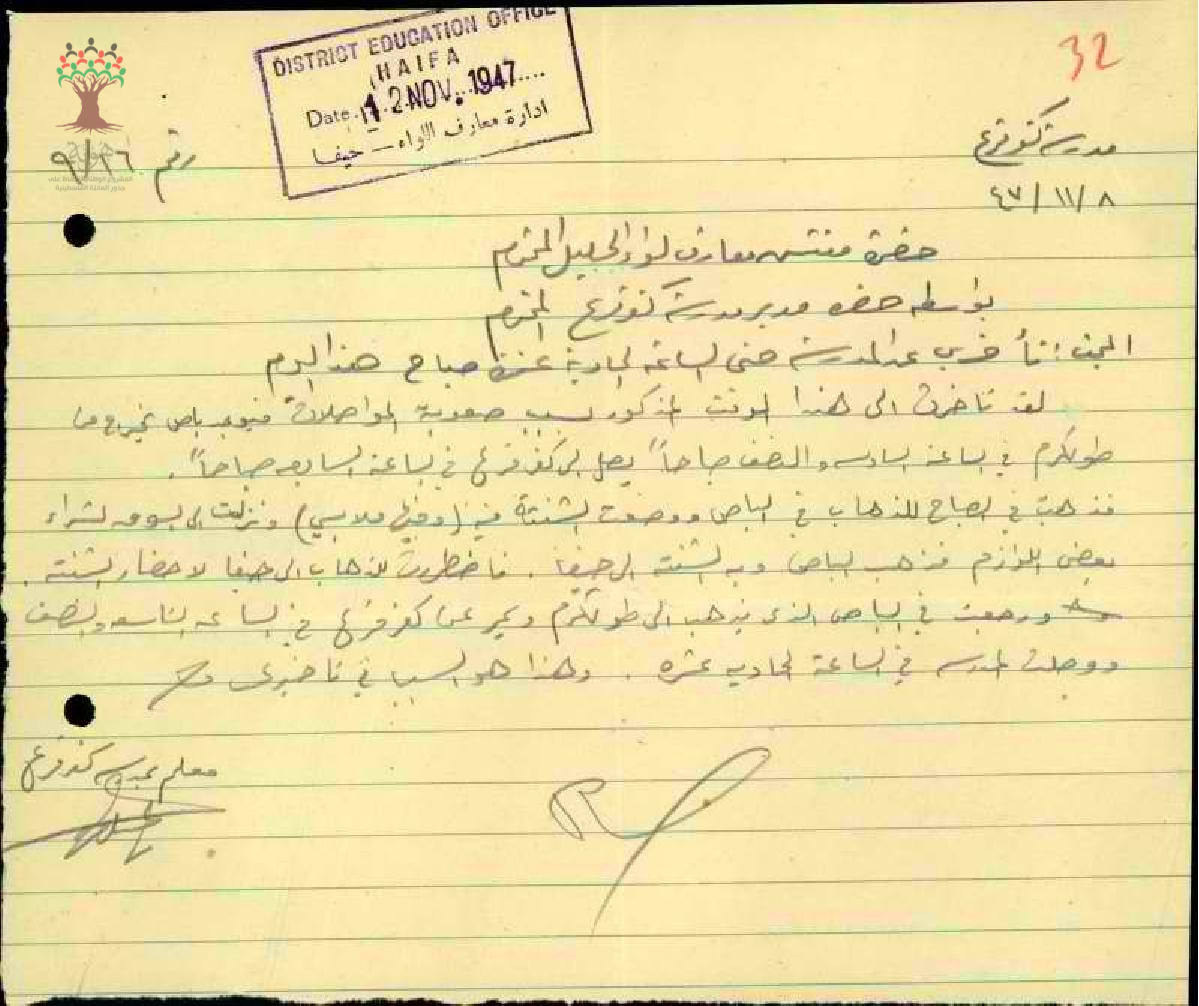 DISTRICT EDUCATION OFFICE
HAIFA
Date 12 NOV. 1947
ادارة معارف اللواء — حيفا
32
مدرسة كفر قرع
رقم ٩/٢٦
٤٧/١١/٨
حضرة مفتش معارف لواء الجليل المحترم
بواسطة حضرة مدير مدرسة كفر قرع المحترم
البحث: تأخري عن المدرسة حتى الساعة الحادية عشرة صباح هذا اليوم
لقد تأخرت الى هذا الوقت المذكور بسبب صعوبة المواصلات فيوجد باص يخرج من
طولكرم في الساعة السادسة والنصف صباحاً يصل الى كفر قرع في الساعة السابعة صباحاً.
فذهبت في الصباح للذهاب في الباص ووضعت الشنتة فيه (وفيها ملابسي) ونزلت الى السوق لشراء
بعض اللوازم فذهب الباص وبه الشنتة الى حيفا. فاضطررت للذهاب الى حيفا لاحضار الشنتة.
ورجعت في الباص الذي يذهب الى طولكرم ويمر عن كفر قرع في الساعة التاسعة والنصف
ووصلت المدرسة في الساعة الحادية عشرة. وهذا هو السبب في تأخيري
معلم بمدرسة كفر قرع